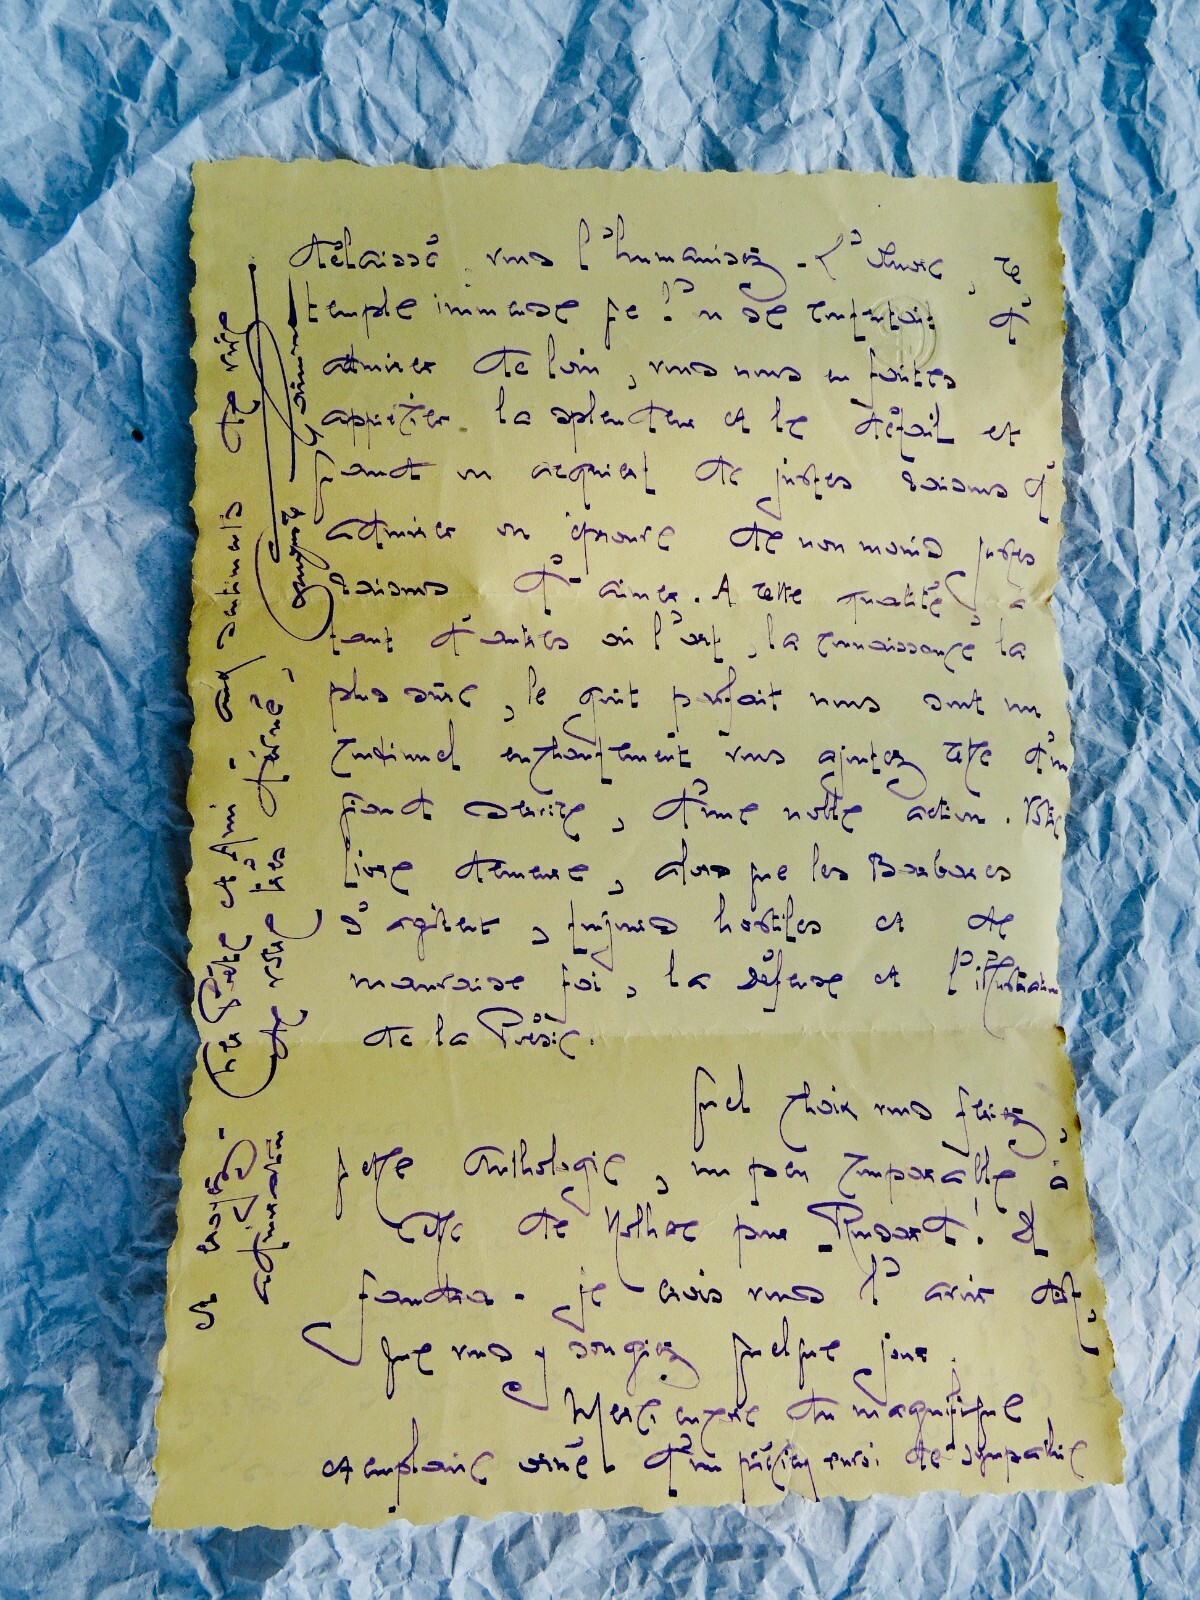 délaissé, vous l'humanisez. L'œuvre, ce
temple immense que l'on se contentait d'
admirer de loin, vous nous en faites
apprécier la splendeur et le détail et
quand on acquiert de justes raisons d'
admirer on éprouve de non moins justes
raisons d'aimer. A cette qualité, à
tant d'autres où l'art, la connaissance la
plus sûre, le goût parfait nous sont un
continuel enchantement vous ajoutez celle d'un
grand service, d'une noble action. Votre
livre demeure, alors que les Barbares
s'agitent, toujours hostiles et de
mauvaise foi, la défense et l'illustration
de la Poésie.
Quel choix vous feriez,
quelle Anthologie, un peu comparable à
celle de pour Ronsard! Il
faudra - je crois vous l'avoir dit,
que vous y songiez quelque jour.
Merci encore du magnifique
exemplaire orné d'un précieux envoi de sympathie
et croyez - cher Poète et Ami - aux sentiments de vive
admiration de votre très dévoué,